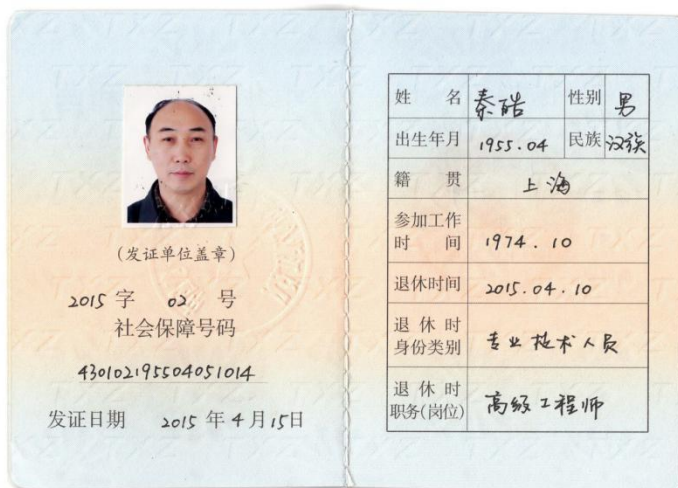 (发证单位盖章)
2015 字 02 号
社会保障号码
430102195504051014
发证日期 2015 年 4 月 15 日
姓 名 秦皓 性别 男
出生年月 1955.04 民族 汉族
籍 贯 上海
参加工作
时 间 1974.10
退休时间 2015.04.10
退 休 时
身份类别 专业技术人员
退 休 时
职务(岗位) 高级工程师